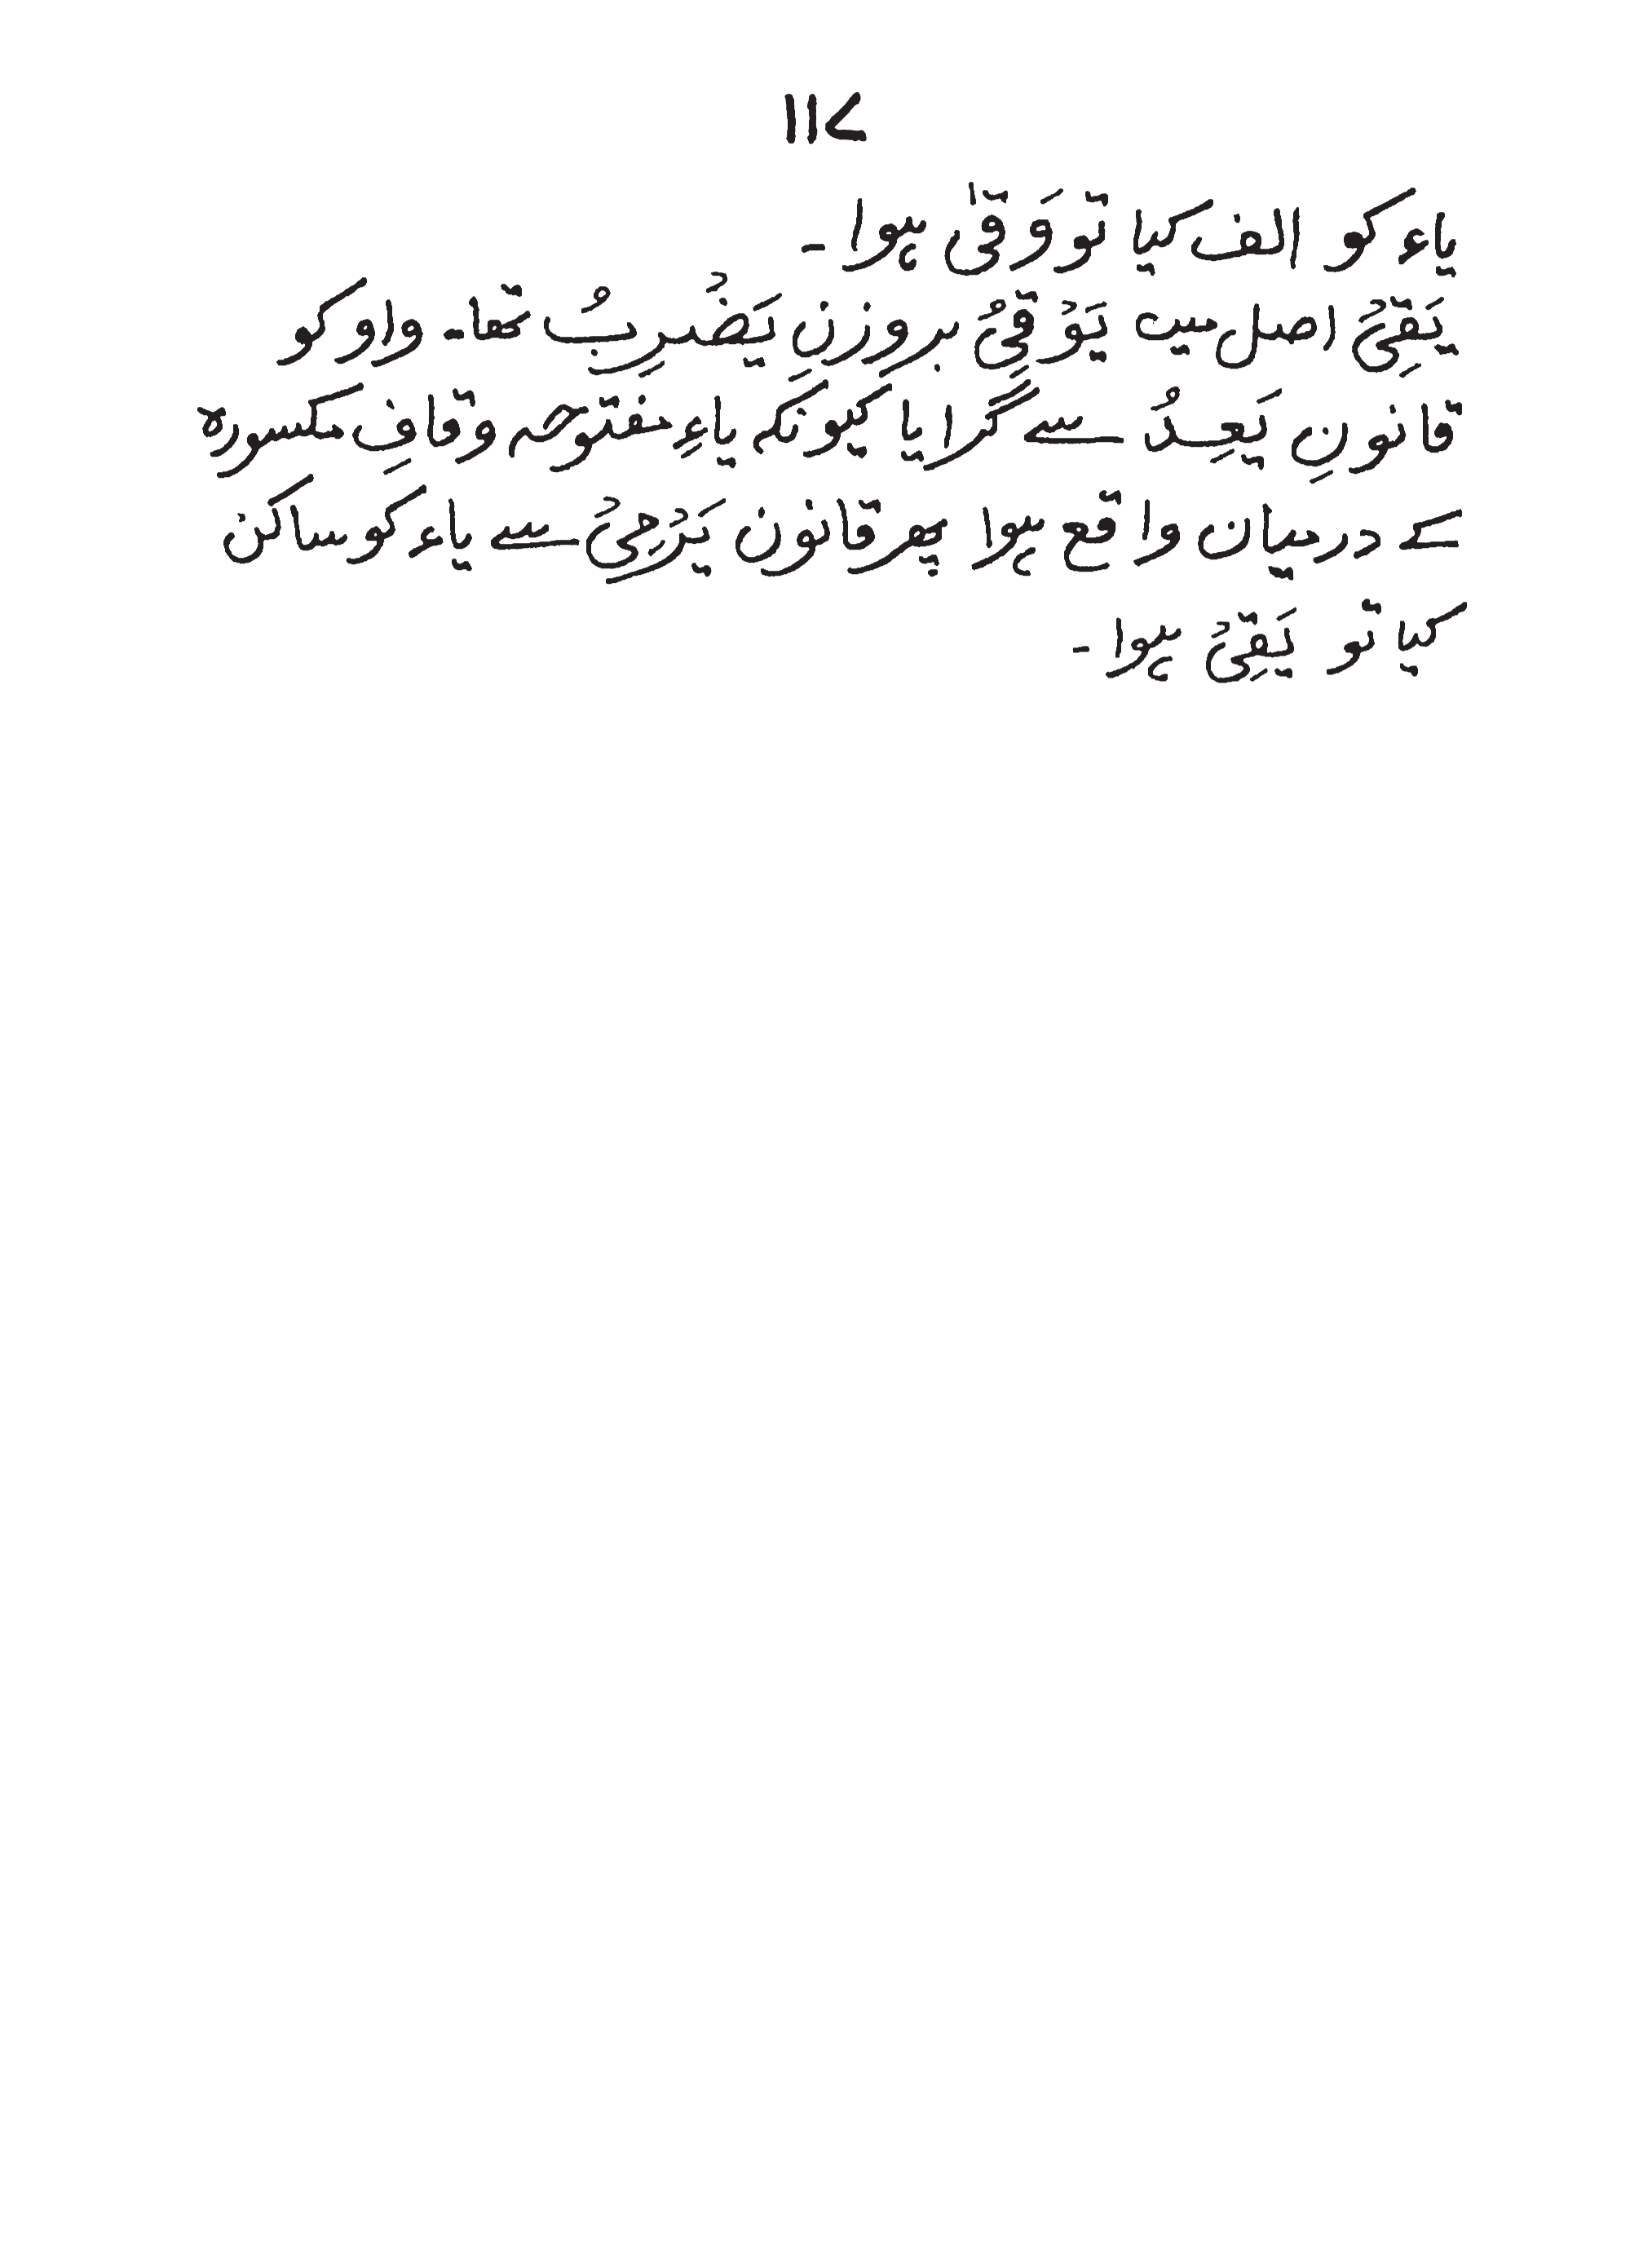 ۱۱۷
یاء کو الف کیا تو وَقیٰ ہوا ۔
یَقِیْ اصل میں یَوْقِیُ بروزنِ یَضْرِبُ تھا۔ واو کو
قانونِ یَعِدُ سے گرایا کیونکہ یاءِ مفتوحہ وقافِ مکسورہ
کے درمیان واقع ہوا پھر قانون یَرْمِیْ سے یاء کو ساکن
کیا تو یَقِیْ ہوا ۔